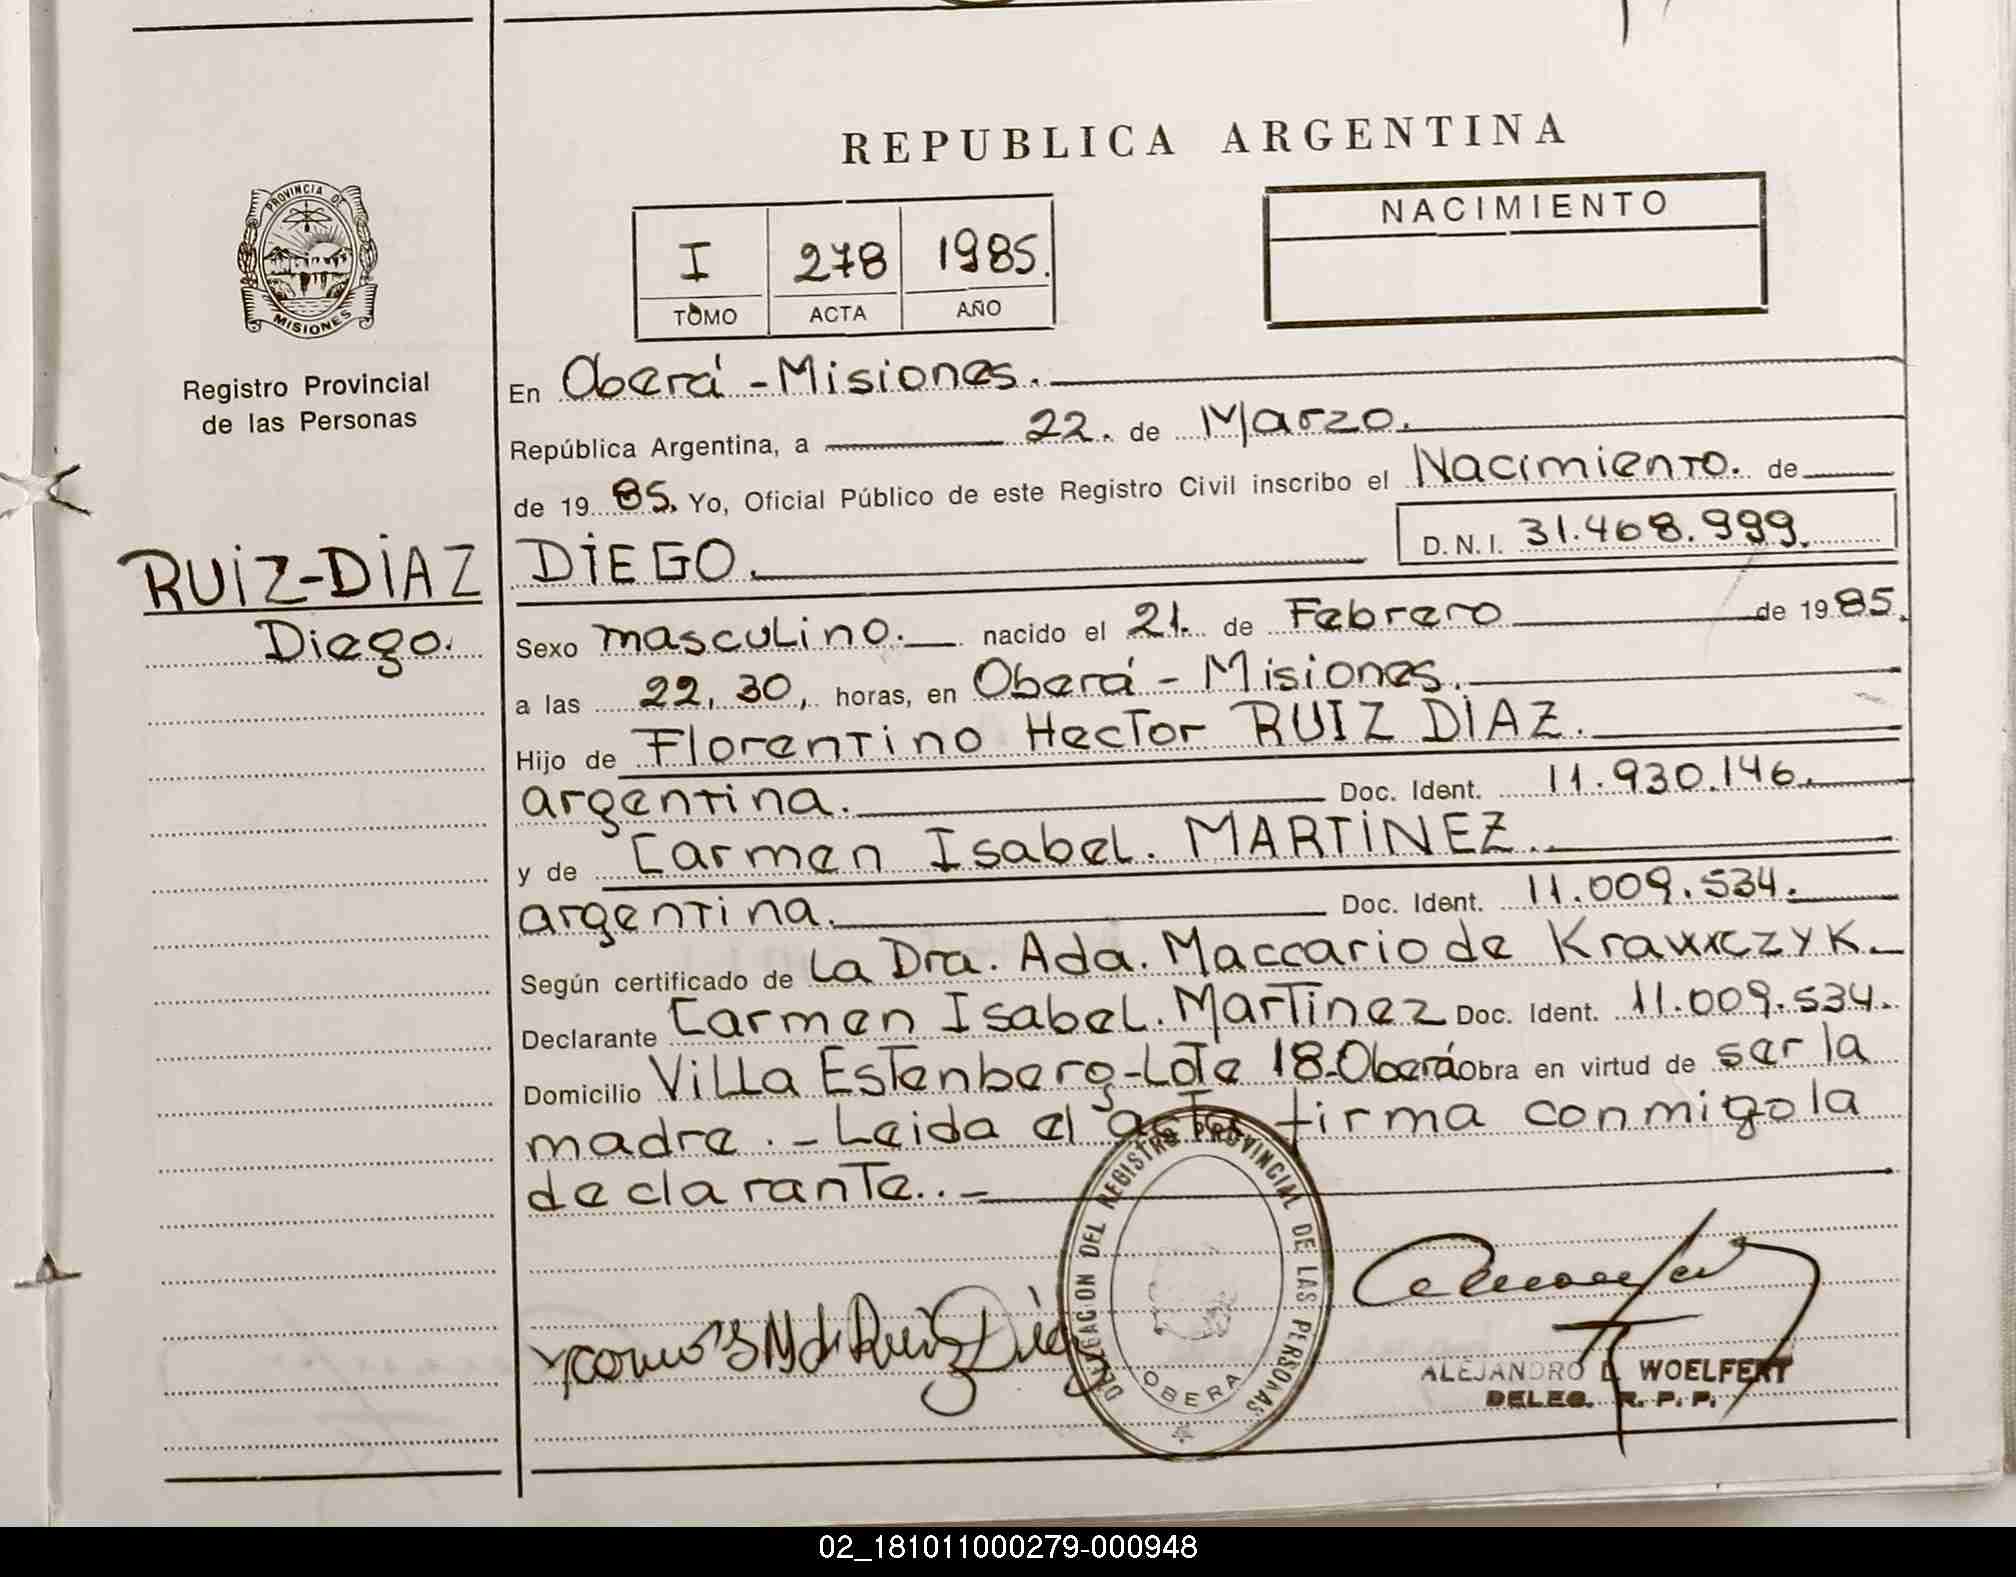 REPUBLICA ARGENTINA
PROVINCIA DE
MISIONES
Registro Provincial
de las Personas
I 278 1985.
TOMO ACTA AÑO
NACIMIENTO
En Oberá - Misiones.
República Argentina, a 22. de Marzo.
de 19 85. Yo, Oficial Público de este Registro Civil inscribo el Nacimiento. de
RUIZ-DIAZ
Diego.
DIEGO. D.N.I. 31.468.999.
Sexo masculino. nacido el 21. de Febrero de 1985.
a las 22,30, horas, en Oberá - Misiones.
Hijo de Florentino Hector RUIZ DIAZ.
argentina. Doc. Ident. 11.930.146.
y de Carmen Isabel. MARTINEZ.
argentina. Doc. Ident. 11.009.534.
Según certificado de la Dra. Ada. Maccario de
Declarante Carmen Isabel. Martinez Doc. Ident. 11.009.534.
Domicilio Villa Estenberg-Lote 18-Oberá Obra en virtud de ser la
madre. - Leida el acta firma conmigo la
declarante. . -
DELEGACION DEL REGISTRO PROVINCIAL DE LAS PERSONAS
OBERA
de Ruiz Díaz
ALEJANDRO WOELFERT
DELEG. R. P. P.
02_181011000279-000948